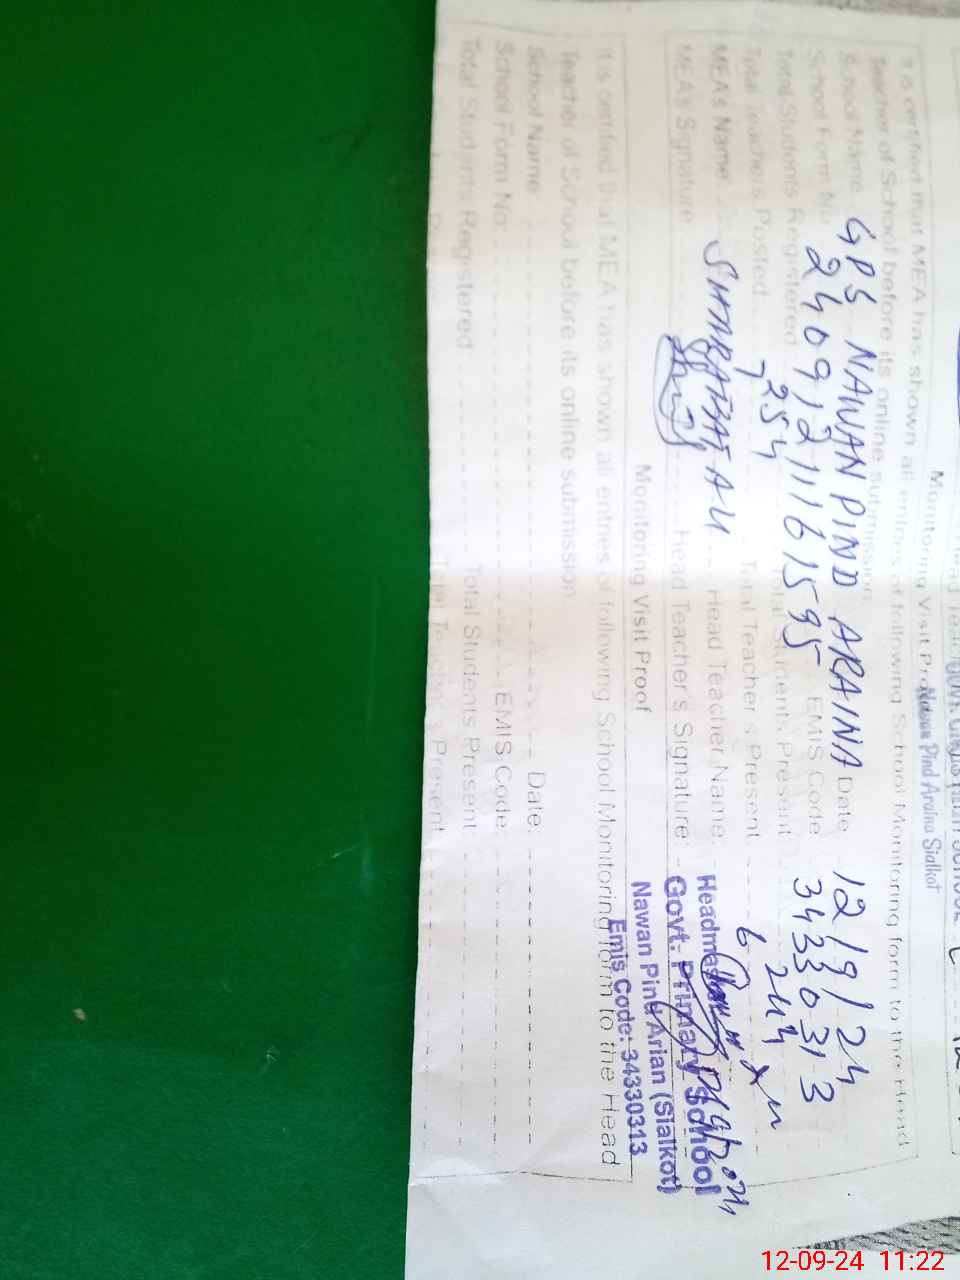 Nawan Pind Araina Sialkot
Monitoring Visit
It is certified that MEA has shown all entries of following School Monitoring form to the Head
Teacher of School before its online submission.
School Name: GPS NAWAN PIND ARAINA Date: 12/9/24
School Form No: 2409121116 1595 EMIS Code: 34330313
Total Students Registered: 254 Total Students Present: 244
Total Teachers Posted: 7 Total Teacher's Present: 6
MEA's Name: SHARAFAT ALI Head Teacher Name:
MEA's Signature: Head Teacher's Signature:
Headmaster
Govt. Primary School
Nawan Pind Arian (Sialkot)
Emis Code: 34330313
Monitoring Visit Proof
It is certified that MEA has shown all entries of following School Monitoring form to the Head
Teacher of School before its online submission.
School Name: Date:
School Form No: EMIS Code:
Total Students Registered: Total Students Present:
Total Teacher's Present:
12-09-24 11:22